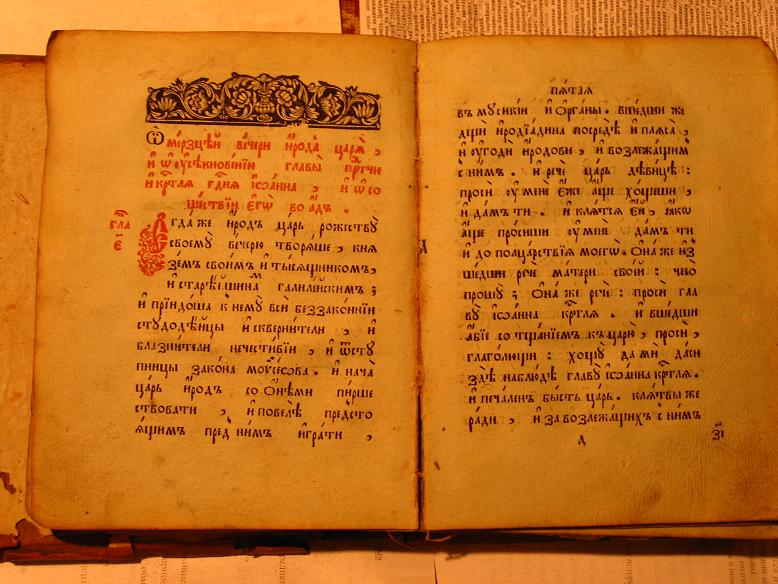 Ѡ҆ ме́рзцѣй ве́чери и҆́рода царѧ̀ ,
и҆ ѡ҆ ᲂу҆сѣкновѐнїи главы̀ прⷣтчи
и҆ крⷭ҇тлѧ гдⷭ҇нѧ і҆ѡа́нна , и҆ ѡ҆ со
шествїи є҆гѡ̀ во а҆́дъ .
гла
є҃
Е҆гда́ же и҆́родъ ца́рь рожествꙋ̀
своемꙋ̀ вече́рю творѧ́ше , кнѧ
зе́мъ свои́мъ и҆ ты́сѧщникомъ ,
и҆ старѣ́йшина галиле́йскимъ ;
и҆ прїидо́ша к немꙋ̀ всѝ беззако́ннїи
стꙋдодѣ́йцы и҆ скверни́тели , и҆
блазни́тели нечести́вїи , и҆ ѿстꙋ
пницы зако́на моѵсе́ова . и҆ нача̀
ца́рь и҆́родъ со ѻ҆нѣ́ми пи́рше
ствовати , и҆ повелѣ̀ пред̾сто
ѧ́щимъ пред ни́мъ и҆гра́ти ,
пѧ́таѧ
въ мꙋсикі́и и҆ ѻ҆рга́ны . вше́дши же
дщи и҆родїа́дина посредѣ̀ и҆ пла́са ,
и҆ ᲂу҆годѝ и҆́родови , и҆ возлежа́щимъ
с ни́мъ . и҆ речѐ ца́рь дѣви́цѣ :
просѝ ᲂу҆ менѐ є҆́же а҆́ще хо́щеши ,
и҆ да́мъ ти . и҆ клѧ́тсѧ є҆́й , ꙗ҆́кѡ
а҆́ще про́сиши ᲂу҆ менѐ да́мъ ти
и҆ до полца́рствїѧ моегѡ̀ . ѻ҆на́ же и҆з
ше́дши речѐ матери свое́й : чесѡ̀
прошꙋ̀ ; ѻ҆на́ же речѐ : просѝ гла
вꙋ̀ і҆ѡа́нна крⷭ҇тлѧ . и҆ вше́дши
а҆́бїе со тща́нїемъ къ царю̀ , просѝ ,
глаго́лющи : хощꙋ̀ да мѝ да́си
здѣ̀ на блю́дѣ главꙋ̀ і҆ѡа́нна крⷭ҇тлѧ .
и҆ печа́ленъ бы́сть ца́рь . клѧ́твы же
ра́ди , и҆ за возлежа́щихъ с ни́мъ
д
з҃і